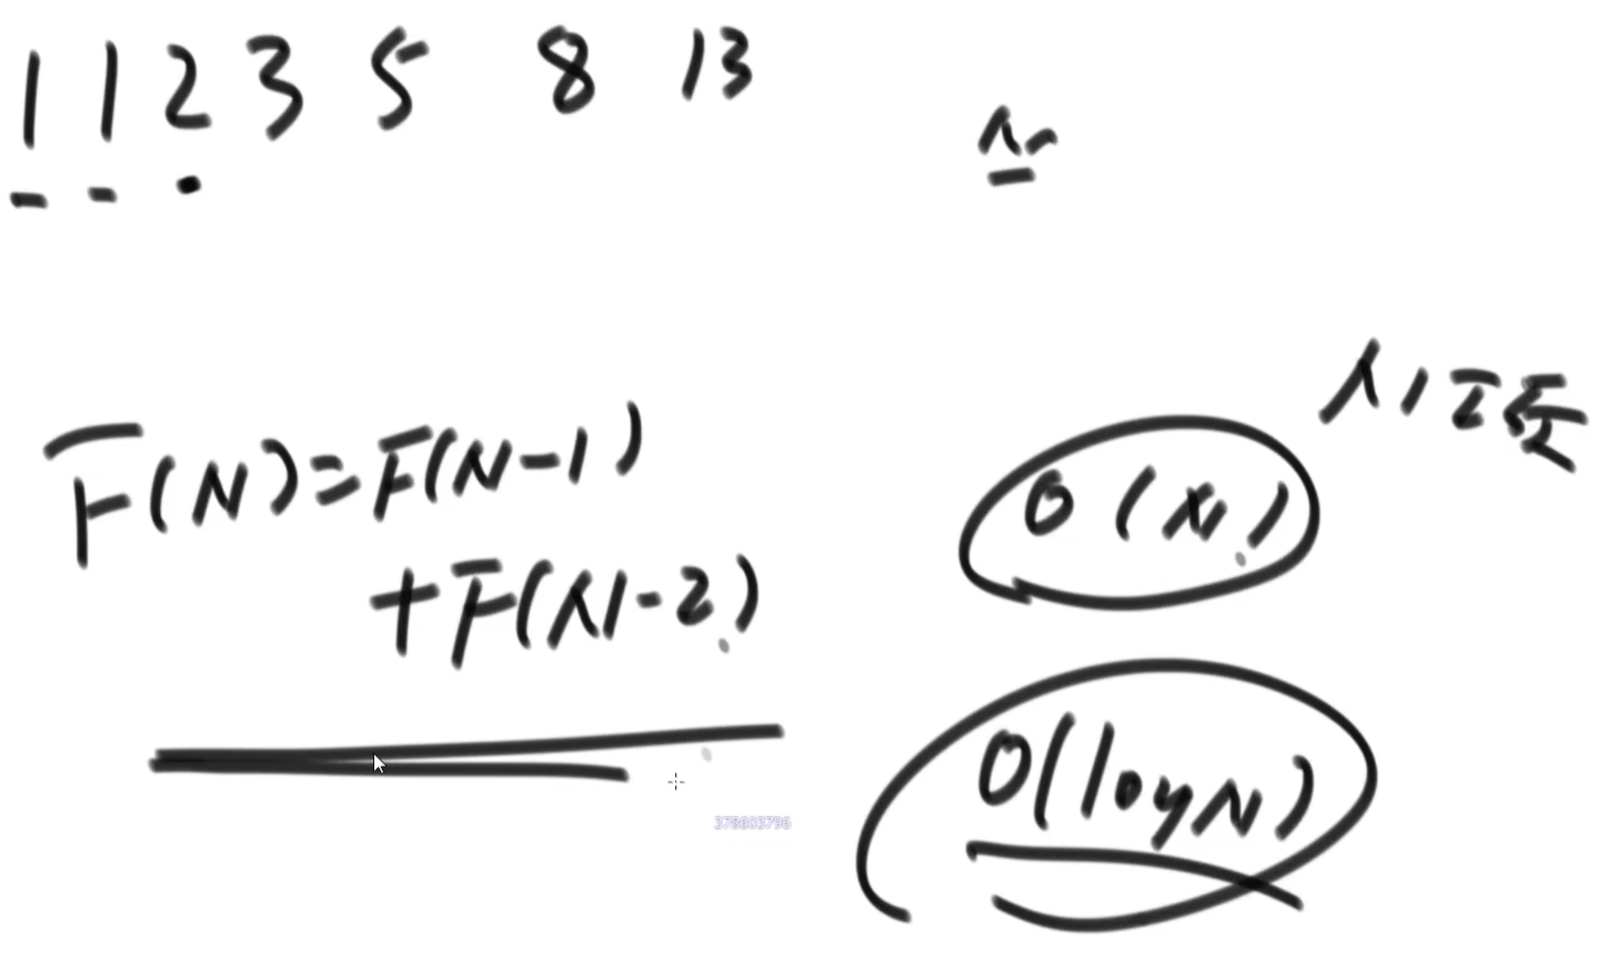 1 1 2 3 5 8 13
F(N)=F(N-1)
+F(N-2)
O(N)
O(logN)
378603796